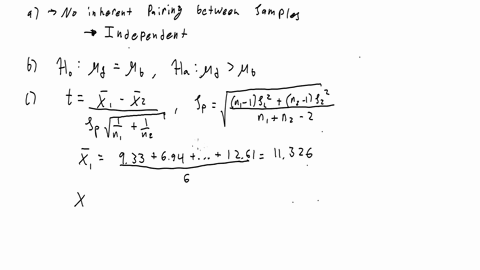 a) → No inherent Pairing between Samples
→ Independent
b) H₀: μd = μb , Ha: μd > μb
c) t = (x̄₁ - x̄₂) / (Sp √(1/n₁ + 1/n₂)) , Sp = √(((n₁-1)S₁² + (n₂-1)S₂²) / (n₁ + n₂ - 2))
x̄₁ = (9.33 + 6.94 + ... + 12.61) / 6 = 11.326
X